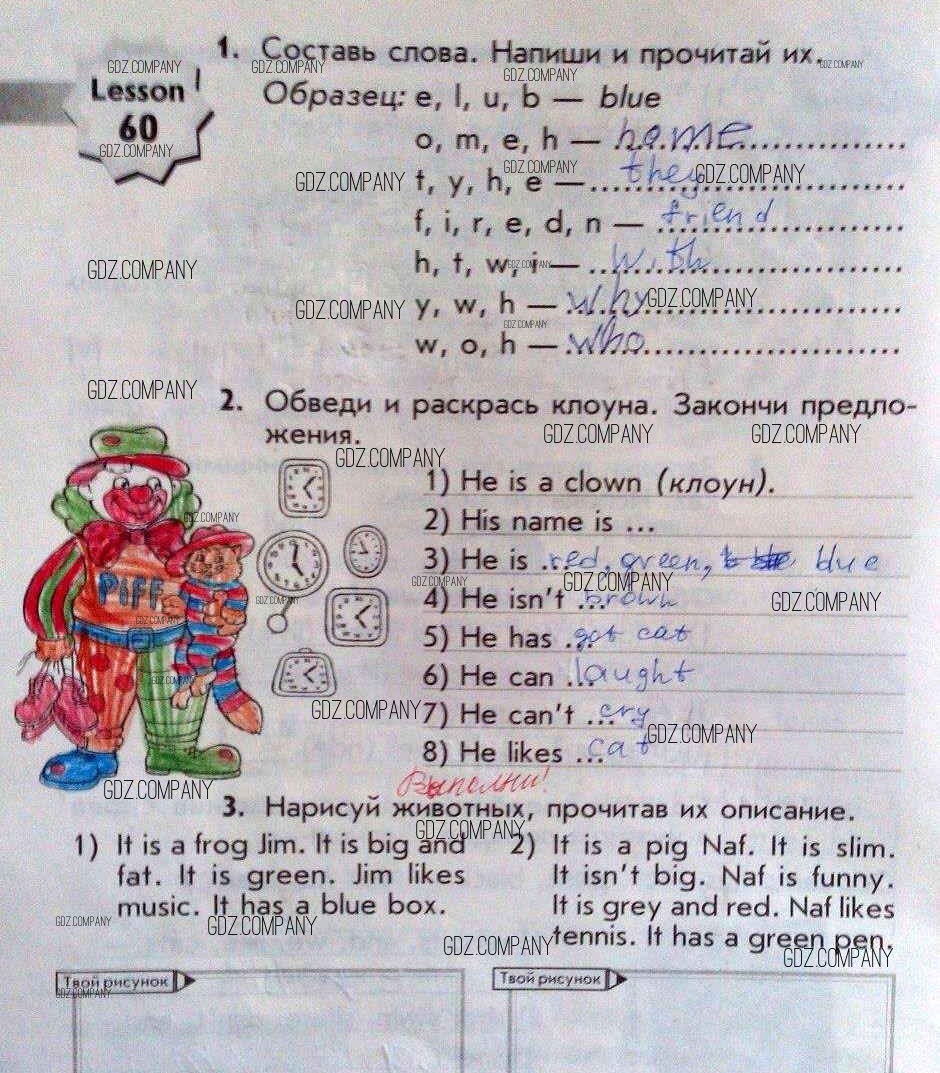 1. Составь слова. Напиши и прочитай их.
Lesson
60
Образец: e, l, u, b — blue
o, m, e, h — home
t, y, h, e — they
f, i, r, e, d, n — friend
h, t, w, i — with
y, w, h — why
w, o, h — who
2. Обведи и раскрась клоуна. Закончи предло-
жения.
1) He is a clown (клоун).
2) His name is ...
3) He is ...red, green, blue
4) He isn't ...brown
5) He has ...got cat
6) He can ...laught
7) He can't ...cry
8) He likes ...cat
PIFF
Выполни!
3. Нарисуй животных, прочитав их описание.
1) It is a frog Jim. It is big and
fat. It is green. Jim likes
music. It has a blue box.
2) It is a pig Naf. It is slim.
It isn't big. Naf is funny.
It is grey and red. Naf likes
tennis. It has a green pen.
Твой рисунок
Твой рисунок
GDZ.COMPANY